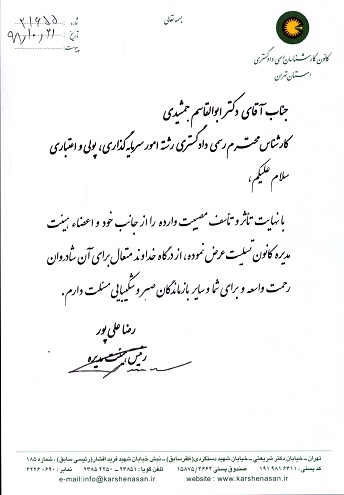 بسمه تعالی
شماره : ۲۱۶۵۵
تاریخ : ۹۸/۱۰/۲۱
پیوست :
کانون کارشناسان رسمی دادگستری
استان تهران
جناب آقای دکتر ابوالقاسم جمشیدی
کارشناس محترم رسمی دادگستری رشته امور سرمایه گذاری، پولی و اعتباری
سلام علیکم ،
با نهایت تأثر و تأسف مصیبت وارده را از جانب خود و اعضاء هیئت
مدیره کانون تسلیت عرض نموده، از درگاه خداوند متعال برای آن شادروان
رحمت واسعه و برای شما و سایر بازماندگان صبر و شکیبایی مسئلت دارم.
رضا علی پور
رئیس هیئت مدیره
تهران - خیابان دکتر شریعتی - خیابان شهید دستگردی (ظفر سابق) - نبش خیابان شهید فرید افشار (رئیسی سابق) - شماره ۱۸۵
کدپستی : ۱۹۱۹۸۱۶۳۱۱ صندوق پستی : ۱۵۸۷۵/۳۶۶۳ تلفن گویا : ۲۳۸۵۱ - ۲۲۵۰ ۲۳۸۵ نمابر : ۰۶۹۰ ۲۲۲۶
e-mail:info@karshenasan.ir website : www.karshenasan.ir